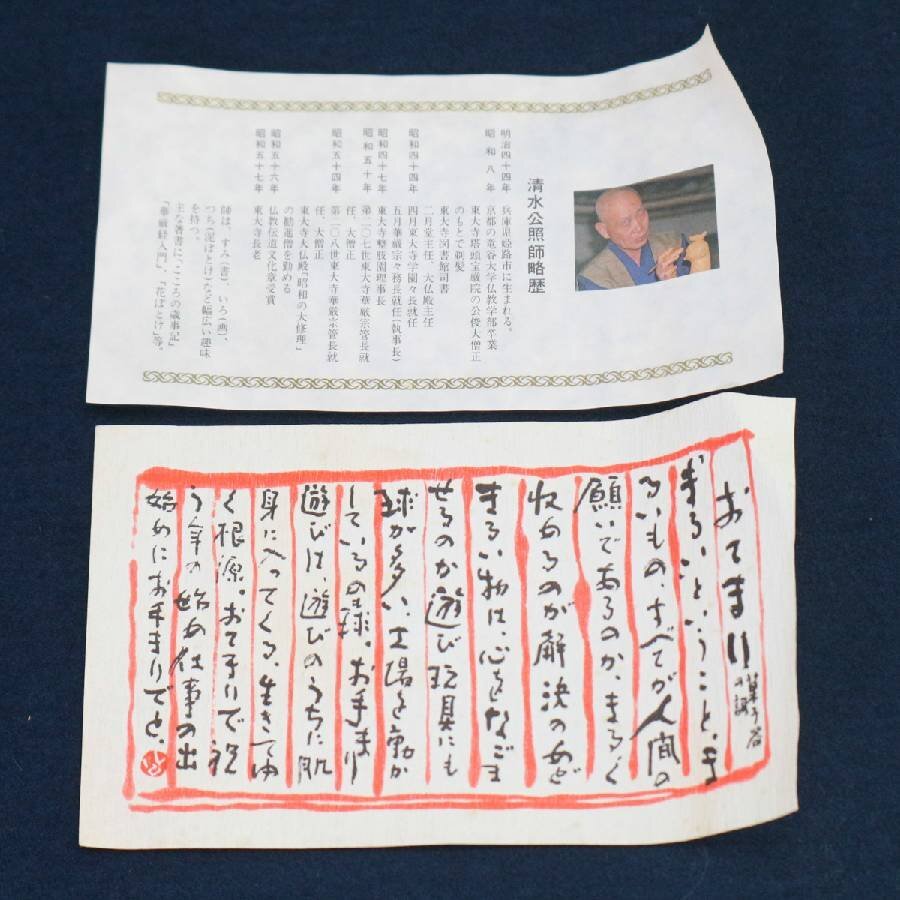 清水公照師略歴
明治四十四年 兵庫県姫路市に生まれる。
昭和八年 京都の竜谷大学仏教学部卒業
東大寺塔頭宝厳院の公俊大僧正
のもとで剃髪
東大寺図書館司書
二月堂主任、大仏殿主任
昭和四十四年 四月東大寺学園々長就任
五月華厳宗々務長就任(執事長)
昭和四十七年 東大寺整肢園理事長
昭和五十年 第二〇七世東大寺華厳宗管長就
任、大僧正
昭和五十四年 第二〇八世東大寺華厳宗管長就
任、大僧正
東大寺大仏殿『昭和の大修理』
の勧進僧を勤める
昭和五十六年 仏教伝道文化章受賞
昭和五十七年 東大寺長老
師は、すみ(書)、いろ(画)、
つち(泥ほとけ)など幅広い趣味
を持つ。
主な著書に、「こころの歳事記」
「華厳経入門」、「花ほとけ」等。
おてまり
まるいということ、ま
るいもの、すべてが人間の
願いであるのか、まるく
収めるのが解決のめど
まるい物は、心をなごま
せるのか遊び玩具にも
球が多い、工場を動か
しているの球。お手まり
遊びは、遊びのうちに肌
身に入ってくる、生きてゆ
く根源。おて手りで祝
う年の始め仕事の出
始めにお手まりでと、